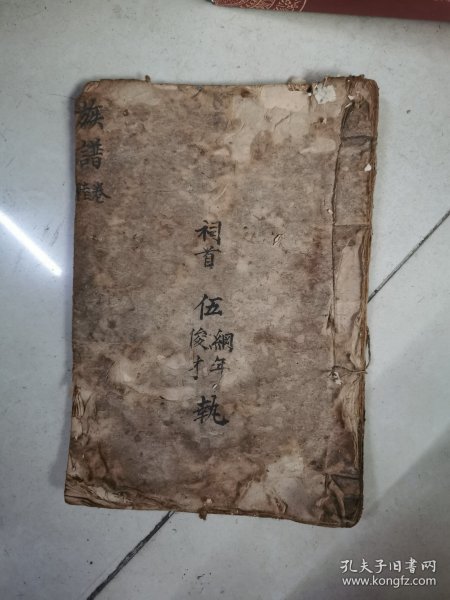 族譜
卷
祠首 伍 綱年 俊才 執
孔夫子旧书网
www.kongfz.com